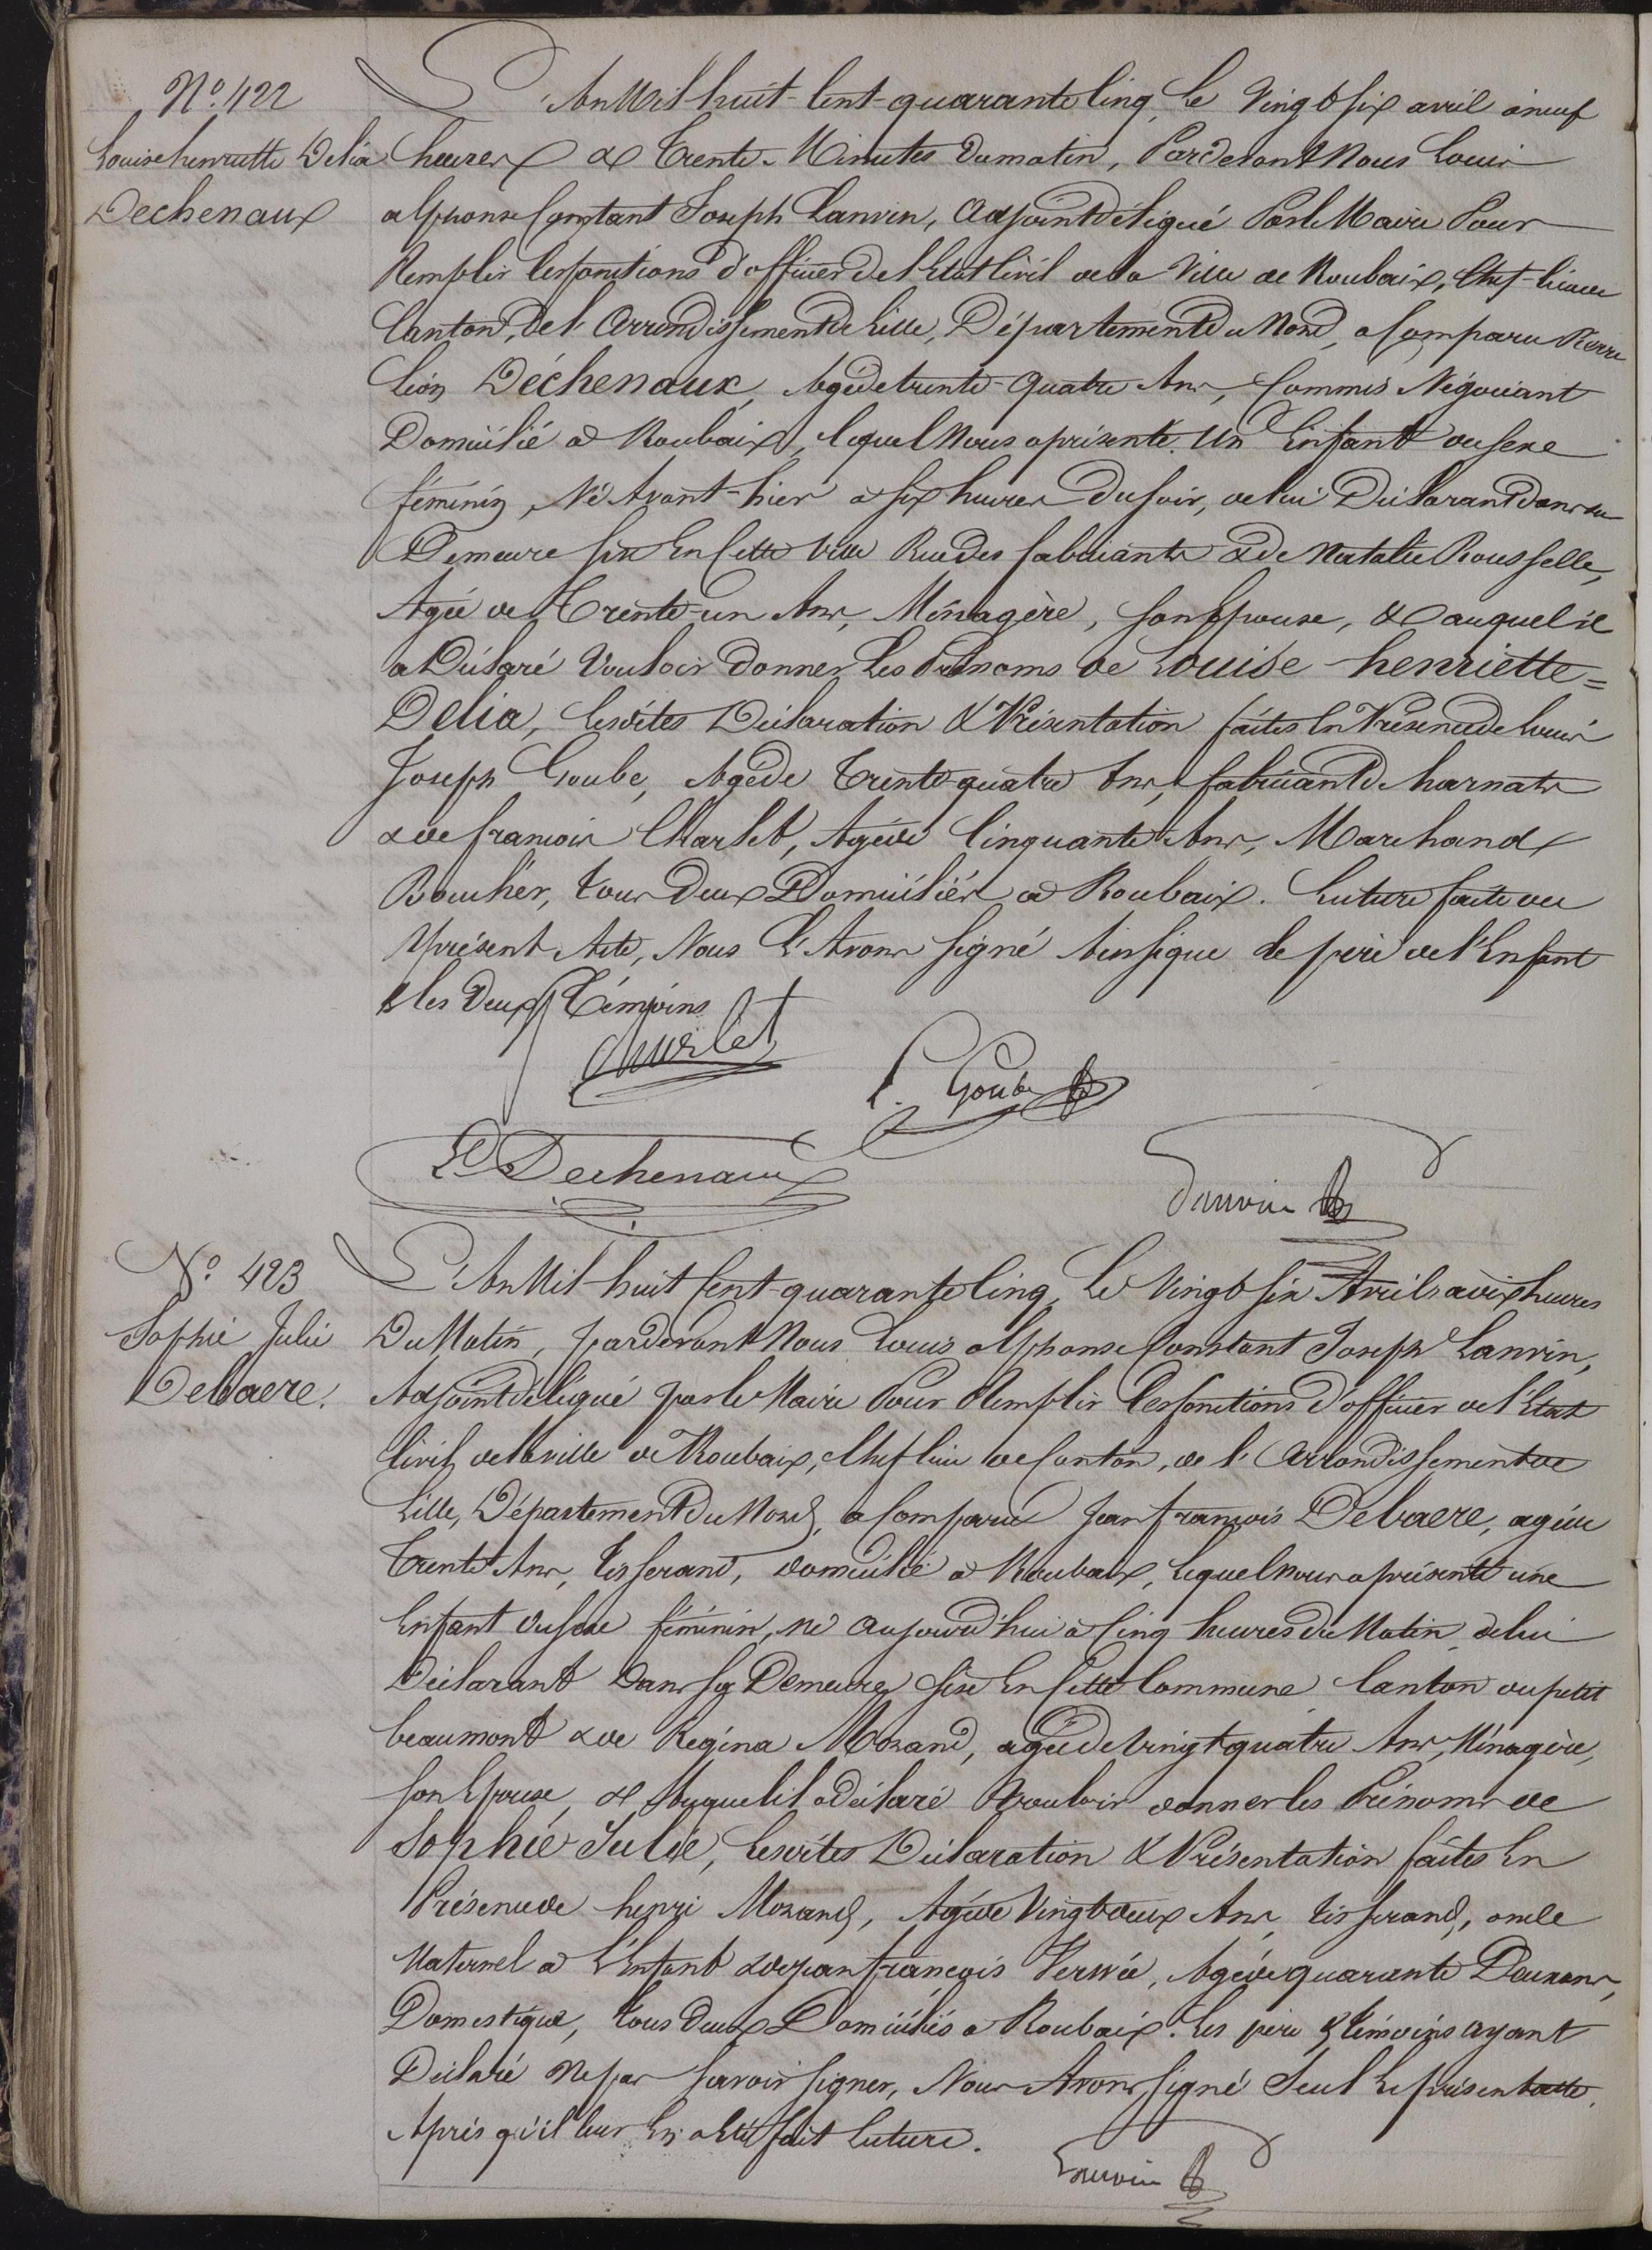 N.° 422
Louise henriette Delia
Dechenaux
L'An Mil huit-Cent-quarante Cinq, Le Vingt six avril à neuf
heures & Trente Minutes du matin, Pardevant Nous Louis
alphonse Constant Joseph Lanvin, Adjoint délégué Par le Maire Pour
Remplir les fonctions d'officier de l'Etat Civil de la Ville de Roubaix, Chef-lieu de
Canton, de l'Arrondissement de Lille, Département du Nord, a Comparu Pierre
Léon Déchenaux, Agé de trente-Quatre Ans, Commis Négociant
Domicilié à Roubaix, lequel Nous a présenté Un Enfant du sexe
féminin, Né Avant-hier à six heures du soir, de lui Déclarant dans sa
Demeure sise En Cette Ville Rue des fabricants & de Natalie Rousselle,
Agée de Trente-un Ans, Ménagère, son Epouse, & auquel il
a Déclaré Vouloir donner Les Prénoms de Louise henriette=
Delia, Lesdites Déclaration & Présentation faites En Présence de Louis
Joseph Goube, Agé de Trente-quatre Ans, fabricant de harnats
& de françois Charlet, Agé de Cinquante Ans, Marchand
Boucher, tous Deux Domiciliés à Roubaix. Lecture faite du
présent Acte, Nous L'Avons signé Ainsi que le père de l'Enfant
& les deux Témoins
Charlet
L. Goube
L Dechenaux
Lanvin
N.° 423
Sophie Julie
Debaere.
L'An Mil-huit Cent-quarante Cinq, Le Vingt six Avril, à dix heures
Du Matin, pardevant Nous Louis alphonse Constant Joseph Lanvin,
Adjoint délégué par le Maire Pour Remplir les fonctions d'officier de l'Etat
Civil de la ville de Roubaix, Chef lieu de Canton, de l'Arrondissement de
Lille, Département du Nord, a Comparu Jean françois Debaere, agé de
Trente Ans, tisserand, domicilié à Roubaix, lequel nous a présenté une
Enfant du sexe féminin, né aujourd'hui à Cinq heures du Matin de lui
Déclarant Dans sa Demeure sise En Cette Commune Canton du petit
beaumont & de Régina Morand, agée de vingt quatre Ans, Ménagère,
son Epouse, & Auquel il a déclaré Vouloir donner les Prénoms de
Sophie Julie, Lesdites Déclaration & Présentation faites En
Présence de henri Morand, Agé de Vingt deux Ans tisserand, oncle
Maternel à L'Enfant & de jean françois Vervée, Agé de quarante Deux ans,
Domestique, tous deux Domiciliés à Roubaix. Les père & témoins ayant
Déclaré Ne pas savoir signer, Nous Avons signé Seul Le présent acte,
Après qu'il leur En a été fait lecture.
Lanvin